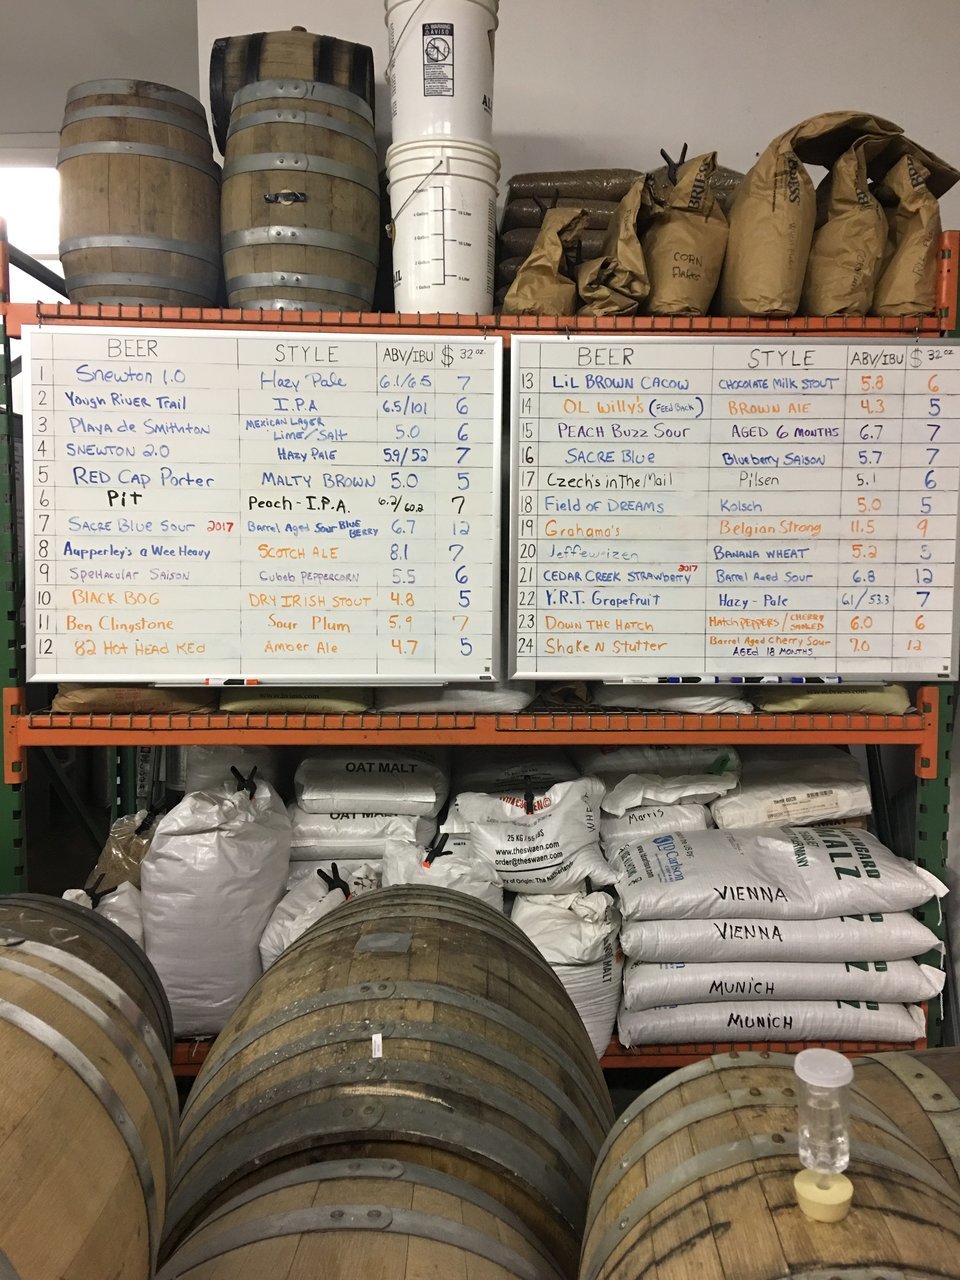 WARNING
AVISO
CORN
Flakes
BEER STYLE ABV/IBU $ 32 oz.
1 Snewton 1.0 Hazy Pale 6.1/65 7
2 Yough River Trail I.P.A 6.5/101 6
3 Playa de Smithton MEXICAN LAGER Lime/Salt 5.0 6
4 SNEWTON 2.0 HAZY PALE 5.9/52 7
5 RED CAP Porter MALTY BROWN 5.0 5
6 Pit Peach - I.P.A. 6.2/60.2 7
7 SACRE Blue Sour 2017 Barrel Aged Sour BLUE BERRY 6.7 12
8 Aupperley's a Wee Heavy SCOTCH ALE 8.1 7
9 Spehtacular SAISON Cubeb PEPPERCORN 5.5 6
10 BLACK BOG DRY IRISH STOUT 4.8 5
11 Ben Clingstone Sour Plum 5.9 7
12 82 HOT HEAD RED Amber Ale 4.7 5
BEER STYLE ABV/IBU $ 32 oz.
13 LiL BROWN CACOW CHOCOLATE MILK STOUT 5.8 6
14 OL Willy's (FEED BACK) BROWN ALE 4.3 5
15 PEACH BUZZ SOUR AGED 6 MONTHS 6.7 7
16 SACRE Blue Blueberry SAISON 5.7 7
17 Czech's in The/Mail Pilsen 5.1 6
18 Field of DREAMS Kolsch 5.0 5
19 Grahama's Belgian Strong 11.5 9
20 Jeffeweizen BANANA WHEAT 5.2 5
21 CEDAR CREEK STRAWBERRY 2017 Barrel Aged Sour 6.8 12
22 Y.R.T. Grapefruit Hazy - Pale 61/53.3 7
23 DOWN THE HATCH HATCH PEPPERS/CHERRY SMOKED 6.0 6
24 Shake N Stutter Barrel Aged Cherry Sour AGED 18 MONTHS 7.0 12
OAT MALT
OAT MALT
25 KG / 55 LBS
www.theswaen.com
order@theswaen.com
Country of Origin: The Netherlands
Marris
VIENNA
VIENNA
MUNICH
MUNICH